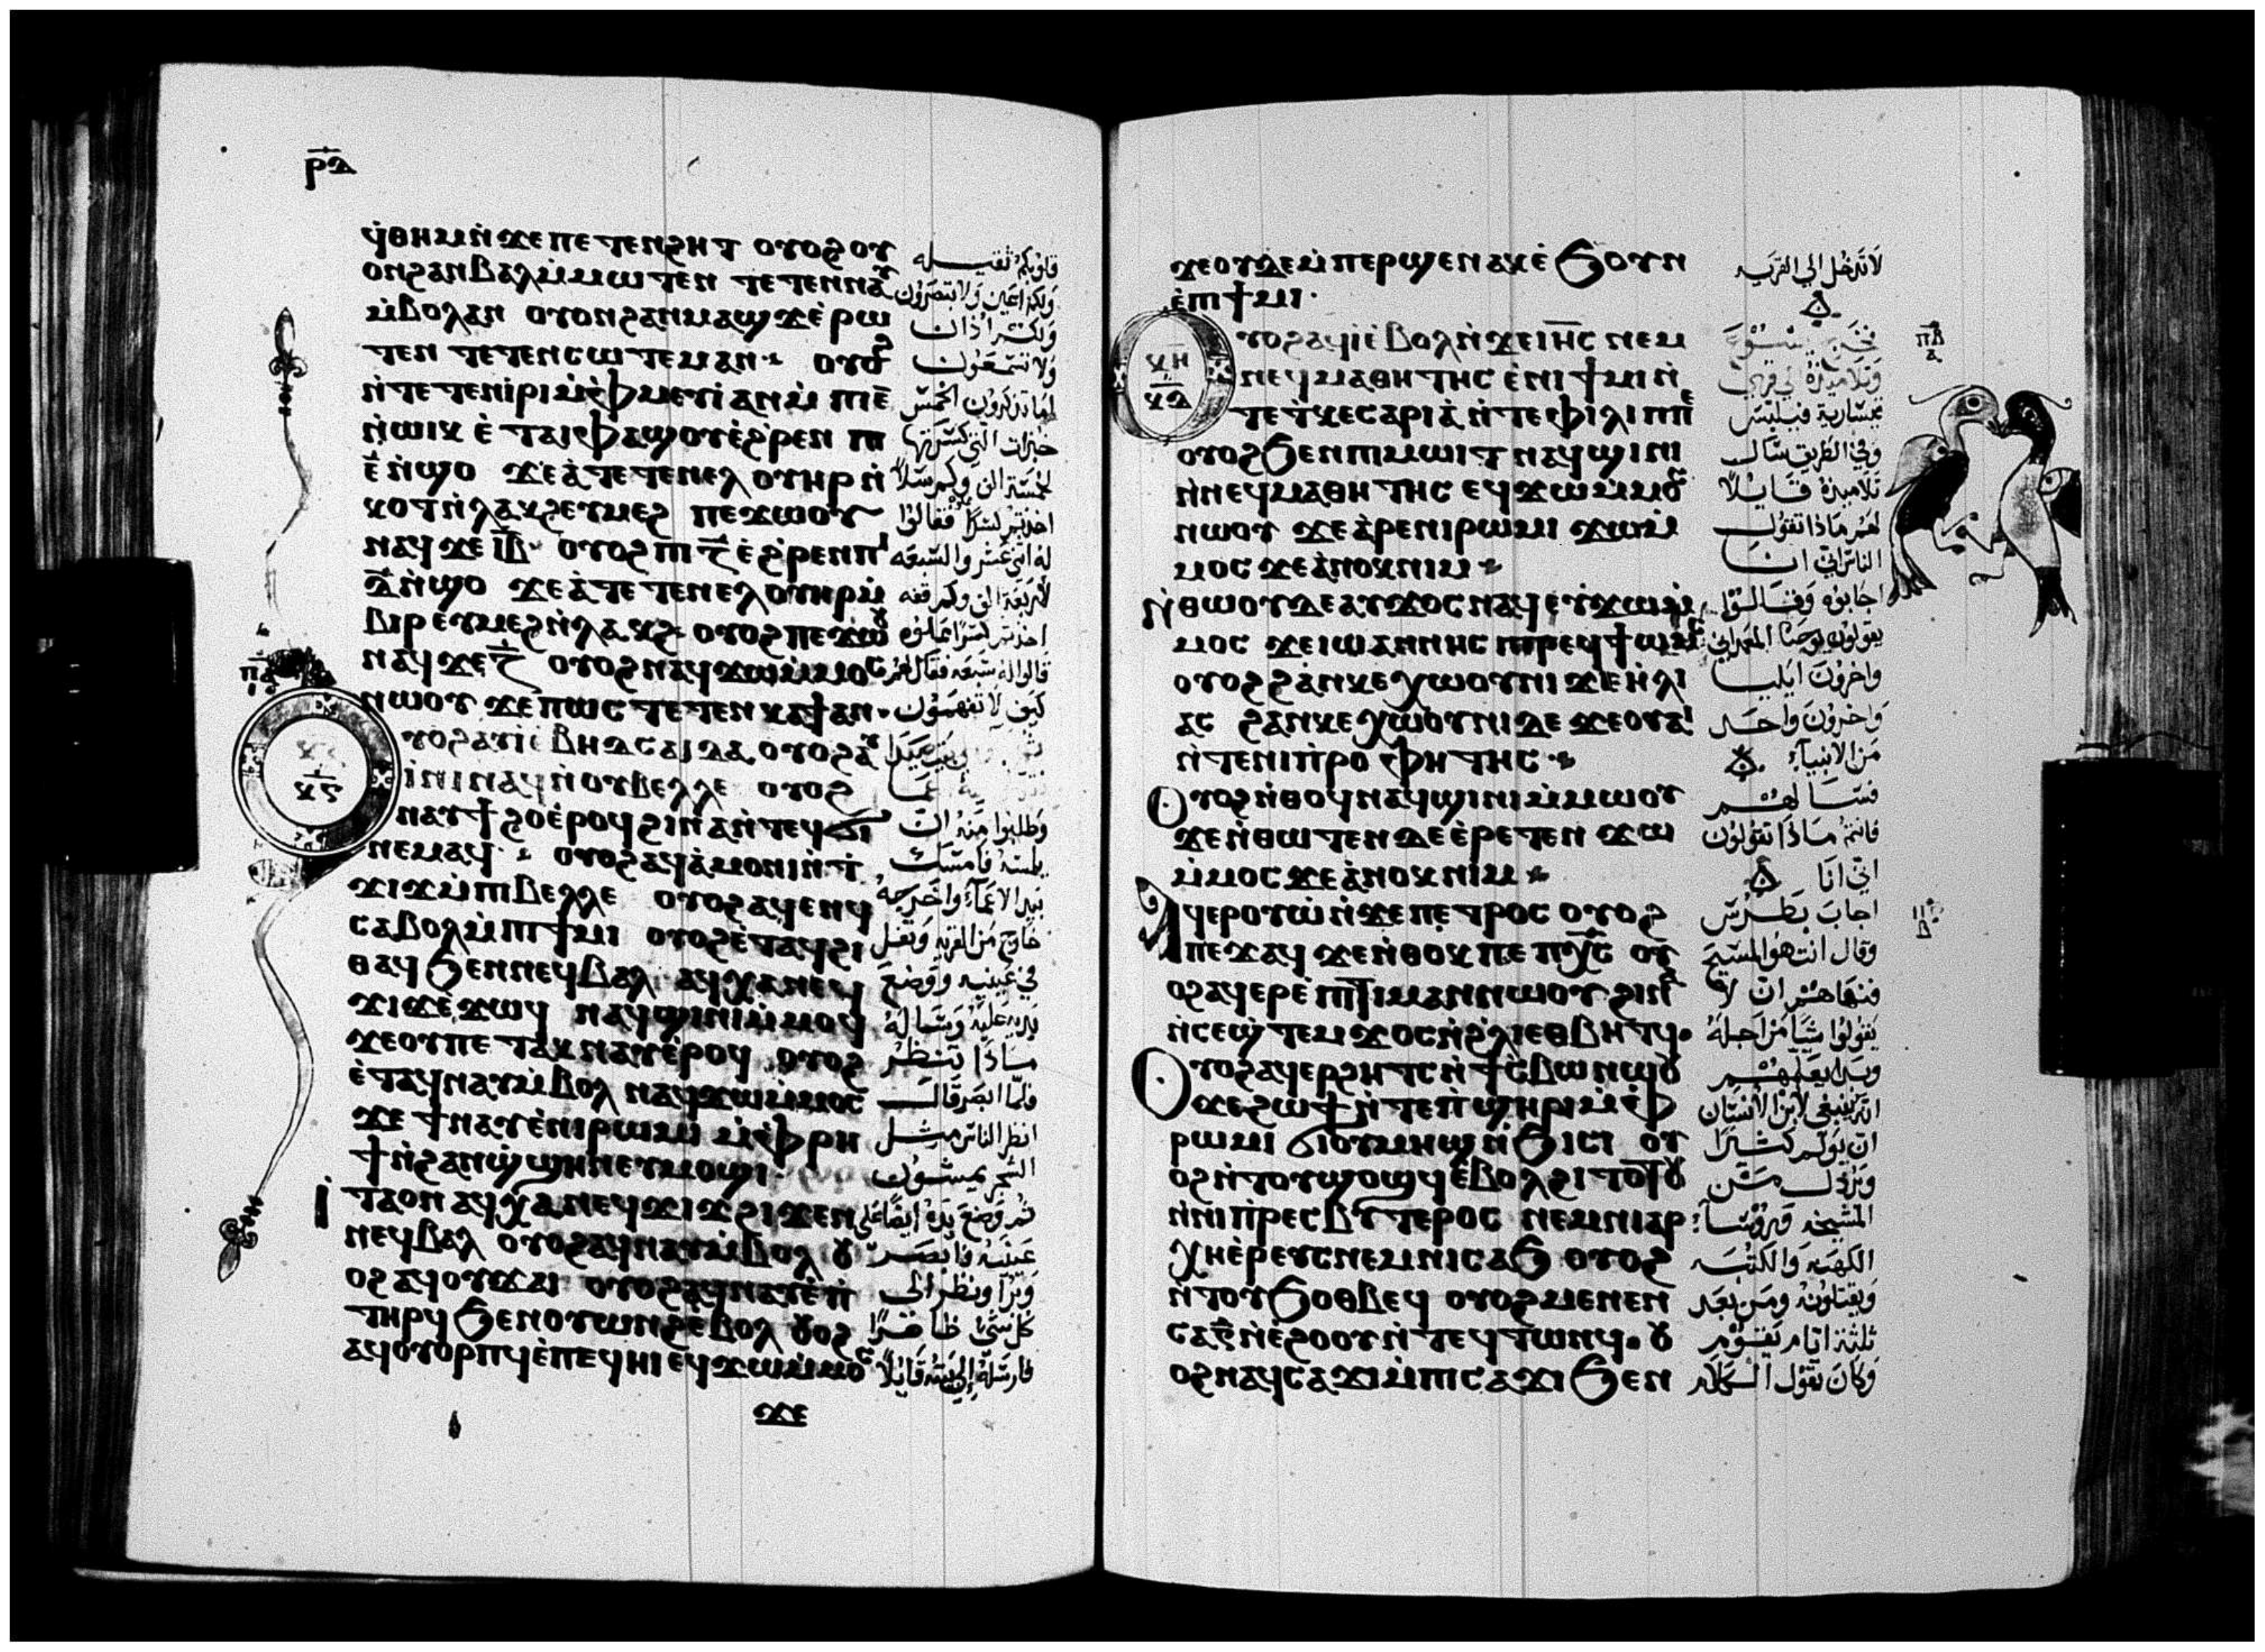 ⲣⲇ
ϥⲑⲏⲙ ⲛ̀ϫⲉ ⲡⲉⲧⲉⲛϩⲏⲧ ⲟⲩⲟϩ ⲟⲩ
ⲟⲛϩⲁⲛⲃⲁⲗ ⲙ̀ⲙⲱⲧⲉⲛ ⲧⲉⲧⲉⲛⲛⲁⲩ
ⲙ̀ⲃⲟⲗ ⲁⲛ ⲟⲩⲟⲛϩⲁⲛⲙⲁϣϫ ⲉ̀ⲣⲱ
ⲧⲉⲛ ⲧⲉⲧⲉⲛⲥⲱⲧⲉⲙ ⲁⲛ ⲟⲩⲟϩ
ⲛ̀ⲧⲉⲧⲉⲛⲓ̀ⲣⲓ ⲙ̀ⲫ̀ⲙⲉⲩⲓ̀ ⲁⲛ ⲙ̀ⲡⲓⲉ̄
ⲛ̀ⲱⲓⲕ ⲉ̀ⲧⲁⲓⲫⲁϣⲟⲩ ⲉ̀ϩ̀ⲣⲉⲛ ⲡⲓ
ⲉ̄ ⲛ̀ϣⲟ ϫⲉ ⲁ̀ⲧⲉⲧⲉⲛⲉⲗ ⲟⲩⲏⲣ ⲛ̀
ⲕⲟⲧ ⲛ̀ⲗⲁⲕϩ ⲉⲩⲙⲉϩ ⲡⲉϫⲱⲟⲩ
ⲛⲁϥ ϫⲉ ⲓ̄ⲃ̄ ⲟⲩⲟϩ ⲡⲓⲍ̄ ⲉ̀ϩ̀ⲣⲉⲛ ⲡⲓ
ⲇ̄ ⲛ̀ϣⲟ ϫⲉ ⲁ̀ⲧⲉⲧⲉⲛⲉⲗ ⲟⲩⲏⲣ ⲙ̀
ⲃⲓⲣ ⲉⲩⲙⲉϩ ⲛ̀ⲗⲁⲕϩ ⲟⲩⲟϩ ⲡⲉϫⲱⲟⲩ
ⲛⲁϥ ϫⲉ ⲍ̄ ⲟⲩⲟϩ ⲛⲁϥϫⲱ ⲙ̀ⲙⲟⲥ
ⲛⲱⲟⲩ ϫⲉ ⲡⲱⲥ ⲧⲉⲧⲉⲛⲕⲁϯ ⲁⲛ
ⲟⲩⲟϩ ⲁⲩⲓ̀ ⲉ̀ⲃⲏⲇⲥⲁⲓⲇⲁ ⲟⲩⲟϩ ⲁⲩ
ⲓ̀ⲛⲓ ⲛⲁϥ ⲛ̀ⲟⲩⲃⲉⲗⲗⲉ ⲟⲩⲟϩ
ⲛⲁⲩϯϩⲟ ⲉ̀ⲣⲟϥ ϩⲓⲛⲁ ⲛ̀ⲧⲉϥϭⲓ
ⲛⲉⲙⲁϥ ⲟⲩⲟϩ ⲁϥⲁ̀ⲙⲟⲛⲓ ⲛ̀ⲧ
ϫⲓϫ ⲙ̀ⲡⲓⲃⲉⲗⲗⲉ ⲟⲩⲟϩ ⲁϥⲉⲛϥ
ⲥⲁⲃⲟⲗ ⲙ̀ⲡⲓϯⲙⲓ ⲟⲩⲟϩ ⲉ̀ⲧⲁϥϩⲓ
ⲑⲁϥ ϧⲉⲛ ⲛⲉϥⲃⲁⲗ ⲁϥⲭⲁ ⲛⲉϥ
ϫⲓϫ ⲉ̀ϫⲱϥ ⲛⲁϥϣⲓⲛⲓ ⲙ̀ⲙⲟϥ
ϫⲉ ⲟⲩ ⲡⲉⲧⲁⲕⲛⲁⲩ ⲉ̀ⲣⲟϥ ⲟⲩⲟϩ
ⲉ̀ⲧⲁϥⲛⲁⲩ ⲙ̀ⲃⲟⲗ ⲛⲁϥϫⲱ ⲙ̀ⲙⲟⲥ
ϫⲉ ϯⲛⲁⲩ ⲉ̀ⲛⲓⲣⲱⲙⲓ ⲙ̀ⲫ̀ⲣⲏ
ϯ ⲛ̀ϩⲁⲛϣ̀ϣⲏⲛ ⲉⲩⲙⲟϣⲓ
ⲓ̀ⲧⲁ ⲟⲛ ⲁϥⲭⲁ ⲛⲉϥϫⲓϫ ϩⲓϫⲉⲛ
ⲛⲉϥⲃⲁⲗ ⲟⲩⲟϩ ⲁϥⲛⲁⲩ ⲙ̀ⲃⲟⲗ ⲟⲩ
ⲟϩ ⲁϥⲟⲩϫⲁⲓ ⲟⲩⲟϩ ⲁϥⲛⲁⲩ ⲉ̀ⲛ
ⲧⲏⲣϥ ϧⲉⲛ ⲟⲩⲱⲛϩ ⲉⲃⲟⲗ ⲟⲩⲟϩ
ⲁϥⲟⲩⲟⲣⲡϥ ⲉ̀ⲡⲉϥⲏⲓ ⲉϥϫⲱ ⲙ̀ⲙⲟⲥ
ϫⲉ
قلوبكم ثقيله
ولكم اعين ولا تبصرون
ولكم اذان
ولا تسمعون
اما تذكرون الخمس
خبزات التي كسرتها
لخمسة الف وكم سلا
اخذتم كسرا فقالوا
له اثني عشر والسبعه
لاربعة الف وكم قفه
اخذتم كسرا مملوه
قالوا له سبعه فقال لهم
كيف لا تفهمون
وطلبوا منه ان
يلمسه فامسك
بيد الاعمى واخرجه
خارج من القريه وتفل
في عينيه ووضع
يديه عليه وساله
ماذا تنظر
فلما ابصر قال
انظر الناس مثل
الشجر يمشون
ثم وضع يده ايضا على
عينيه فابصر
وبرا ونظر الى
كل شي ظاهرا
فارسله الى بيته قايلا
ϫⲉ ⲟⲩⲇⲉ ⲙ̀ⲡⲉⲣϣⲉⲛⲁⲕ ⲉ̀ϧⲟⲩⲛ
ⲉ̀ⲡⲓϯⲙⲓ
ⲟⲩⲟϩ ⲁϥⲓ̀ ⲉ̀ⲃⲟⲗ ⲛ̀ϫⲉ ⲓⲏ̄ⲥ ⲛⲉⲙ
ⲛⲉϥⲙⲁⲑⲏⲧⲏⲥ ⲉ̀ⲛⲓϯⲙⲓ ⲛ̀
ⲧⲉ ⲧ̀ⲕⲉⲥⲁⲣⲓⲁ̀ ⲛ̀ⲧⲉ ⲫⲓⲗⲓⲡⲡⲉ
ⲟⲩⲟϩ ϧⲉⲛ ⲡⲓⲙⲱⲓⲧ ⲛⲁϥϣⲓⲛⲓ
ⲛ̀ⲛⲉϥⲙⲁⲑⲏⲧⲏⲥ ⲉϥϫⲱ ⲙ̀ⲙⲟⲥ
ⲛⲱⲟⲩ ϫⲉ ⲁ̀ⲣⲉ ⲛⲓⲣⲱⲙⲓ ϫⲱ ⲙ̀
ⲙⲟⲥ ϫⲉ ⲁ̀ⲛⲟⲕ ⲛⲓⲙ
ⲛ̀ⲑⲱⲟⲩ ⲇⲉ ⲁⲩϫⲟⲥ ⲛⲁϥ ⲉⲩϫⲱ ⲙ̀
ⲙⲟⲥ ϫⲉ ⲓⲱⲁⲛⲛⲏⲥ ⲡⲓⲣⲉϥϯⲱⲙⲥ
ⲟⲩⲟϩ ϩⲁⲛⲕⲉⲭⲱⲟⲩⲛⲓ ϫⲉ ⲏ̀ⲗⲓ
ⲁⲥ ϩⲁⲛⲕⲉⲭⲱⲟⲩⲛⲓ ⲇⲉ ϫⲉ ⲟⲩⲁⲓ
ⲛ̀ⲧⲉ ⲛⲓⲡ̀ⲣⲟⲫⲏⲧⲏⲥ
ⲟⲩⲟϩ ⲛ̀ⲑⲟϥ ⲛⲁϥϣⲓⲛⲓ ⲙ̀ⲙⲱⲟⲩ
ϫⲉ ⲛ̀ⲑⲱⲧⲉⲛ ⲇⲉ ⲉ̀ⲣⲉⲧⲉⲛ ϫⲱ
ⲙ̀ⲙⲟⲥ ϫⲉ ⲁ̀ⲛⲟⲕ ⲛⲓⲙ
ⲁϥⲉⲣⲟⲩⲱ̀ ⲛ̀ϫⲉ ⲡⲉⲧⲣⲟⲥ ⲟⲩⲟϩ
ⲡⲉϫⲁϥ ϫⲉ ⲛ̀ⲑⲟⲕ ⲡⲉ ⲡⲭ̄ⲥ ⲟⲩ
ⲟϩ ⲁϥⲉⲣⲉ̀ⲡⲓⲧⲓⲙⲁⲛ ⲛⲱⲟⲩ ϩⲓⲛⲁ
ⲛ̀ⲥⲉϣ̀ⲧⲉⲙϫⲟⲥ ⲛ̀ϩ̀ⲗⲓ ⲉⲑⲃⲏⲧϥ
ⲟⲩⲟϩ ⲁϥⲉⲣϩⲏⲧⲥ ⲛ̀ϯⲥ̀ⲃⲱ ⲛⲱⲟⲩ
ϫⲉ ϩⲱϯ ⲛ̀ⲧⲉ ⲡ̀ϣⲏⲣⲓ ⲙ̀ⲫ̀
ⲣⲱⲙⲓ ϭⲓ ⲟⲩⲙⲏϣ ⲛ̀ϧⲓⲥⲓ ⲟⲩ
ⲟϩ ⲛ̀ⲧⲟⲩϣⲟϣϥ ⲉ̀ⲃⲟⲗ ϩⲓⲧⲟⲧⲟⲩ
ⲛ̀ⲛⲓⲡ̀ⲣⲉⲥⲃⲩⲧⲉⲣⲟⲥ ⲛⲉⲙ ⲛⲓⲁⲣ
ⲭⲏⲉ̀ⲣⲉⲩⲥ ⲛⲉⲙ ⲛⲓⲥⲁϧ ⲟⲩⲟϩ
ⲛ̀ⲧⲟⲩϧⲟⲑⲃⲉϥ ⲟⲩⲟϩ ⲙⲉⲛⲉⲛ
ⲥⲁ ⲅ̄ ⲛ̀ⲉ̀ϩⲟⲟⲩ ⲛ̀ⲧⲉϥⲧⲱⲛϥ ⲟⲩ
ⲟϩ ⲛⲁϥⲥⲁϫⲓ ⲙ̀ⲡⲓⲥⲁϫⲓ ϧⲉⲛ
لا تدخل الى القريه
وتلاميذه الى قرى
قيساريه فيلبس
وفي الطريق سال
تلاميذه قايلا
لهم ماذا تقول
الناس اني انا
اجابوه وقالوا
يقولون يوحنا المعمداني
واخرون ايليا
واخرون واحد
من الانبياء
فسالهم
فانتم ماذا تقولون
اني انا
اجاب بطرس
وقال انت هو المسيح
فنهاهم ان لا
يقولوا شيا من اجله
وبدا يعلمهم
انه ينبغي لابن الانسان
ان يولم كثيرا
ويرذل من
المشيخه وروسا
الكهنه والكتبه
ويقتلونه ومن بعد
ثلثة ايام يقوم
وكان يقول الكلام